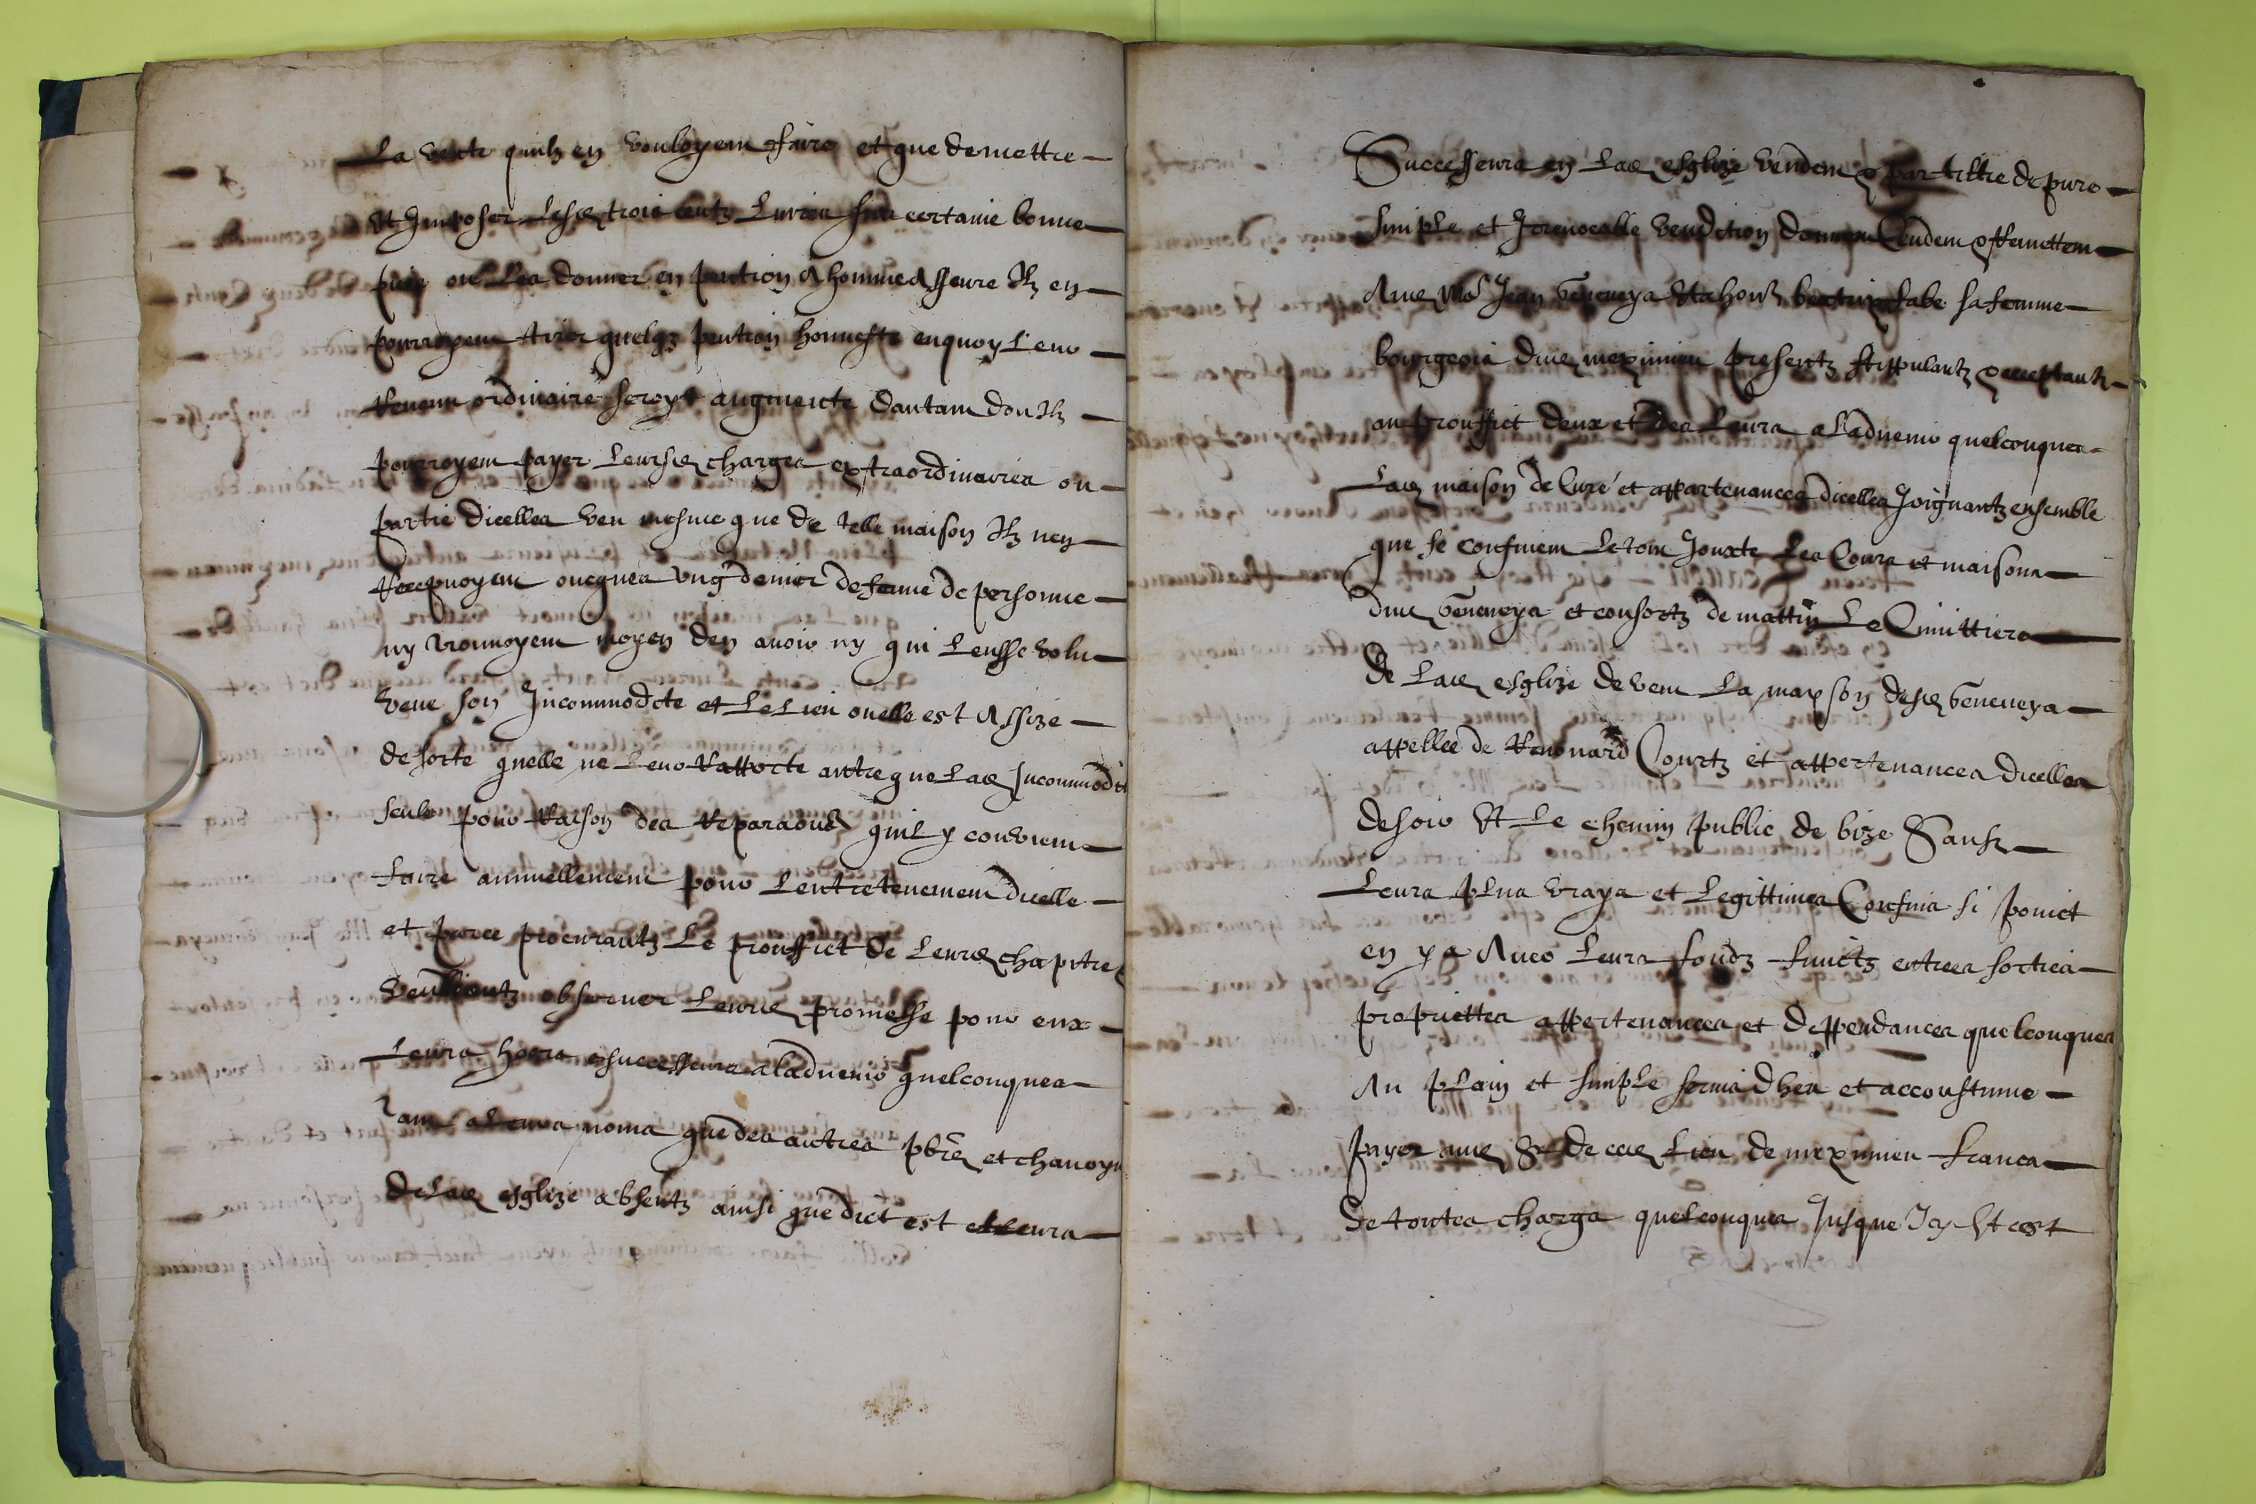 La vente quilz en vouloyent faire et que de mettre
et Imposer lesd trois centz livres sur certaine bonne
piece ou les donner en pention a homme asseure Ilz en
pourroyent tirer quelq pention honneste enquoy leur
Revenu ordinaire seroyt augmente dautant don Ilz
pourroyent payer leursd charges extraordinaires ou
partie dicelles veu mesme que de telle maison Ilz ney
Recepvoyent oncques ung denier de ferme de personne
ny trouvoyent moyen den avoir ny qui leusse volu
veue son Incommodite et le lieu ou elle est Assize
de sorte quelle ne leur Rapporte autre que lad Incommodite
seule pour Raison des Reparaons quil y convient
faire annuellement pour lentretenement dicelle
et parce procurantz le prouffict de leurd chapitre
veuillantz observer leurd promesse pour eux
leurs hoirs & successeurs a ladvenir quelconques
Tant a leurs noms que des autres pbres et chanoyn
de lad esglize absentz ainsi que dict est et leurs
Successeurs en lad esglize vendent & par tiltre de pure
simple et Irrevocable vendition donnent cedent & Remettent
Aud Me Jean Veneneys et a hon beatrix fabe sa femme
bourgeois dud meximieu presentz stippulantz & acceptantz
au prouffict deux et des leurs a ladvenir quelconques
Lad maison de Cure et appartenances dicelles Joignantz ensemble
que se confinent le tout Jouxte les Cours et maisons
dud Veneneys et consortz de mattin Le Cimittiere
de lad esglize de vent La mayson desd Veneneys
appellee de Renouard Courtz et appertenances dicelles
de soir Et Le chemin public de bize Saufz
Leurs plus vrays et legittimes Confins si point
en y a Avec leurs fondz fruictz entrees sorties
propriettes appertenances et deppendances quelconques
Au plain et simple servis dheu et accoustume
payer aud Sr de ced lieu de meximieu francs
de toutes charges quelconques Jusque Icy Et cest